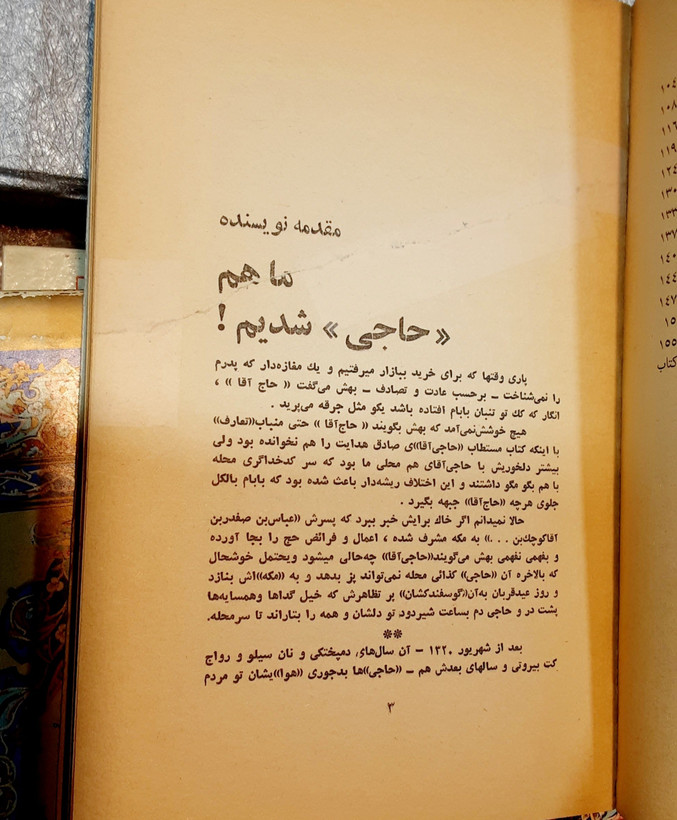 مقدمه نویسنده
ما هم
«حاجی» شدیم !
پاری وقتها که برای خرید ببازار میرفتیم و یك مغازه‌دار که پدرم
را نمی‌شناخت ــ برحسب عادت و تصادف ــ بهش می‌گفت «حاج آقا» ،
انگار که كك تو تنبان بابام افتاده باشد یکو مثل جرقه می‌پرید .
هیچ خوشش‌نمی‌آمد که بهش بگویند «حاج‌آقا» حتی منباب«تعارف»
با اینکه کتاب مستطاب «حاجی‌آقا»ی صادق هدایت را هم نخوانده بود ولی
بیشتر دلخوریش با حاجی‌آقای هم محلی ما بود که سر کدخداگری محله
با هم بگو مگو داشتند و این اختلاف ریشه‌دار باعث شده بود که بابام بالکل
جلوی هرچه «حاج‌آقا» جبهه بگیرد .
حالا نمیدانم اگر خاك برایش خبر ببرد که پسرش «عباس‌بن صفدربن
آقاکوچك‌بن . . .» به مکه مشرف شده ، اعمال و فرائض حج را بجا آورده
و بفهمی نفهمی بهش می‌گویند«حاجی‌آقا» چه‌حالی میشود ویحتمل خوشحال
که بالاخره آن «حاجی» کذائی محله نمی‌تواند پز بدهد و به «مکه»اش بنازد
و روز عیدقربان به‌آن«گوسفندکشان» پر تظاهرش که خیل گداها وهمسایه‌ها
پشت در و حاجی دم بساعت شیردود تو دلشان و همه را بتاراند تا سرمحله.
**
بعد از شهریور ۱۳۲۰ - آن سال‌های، دمپختکی و نان سیلو و رواج
کت بیرونی و سالهای بعدش هم ــ «حاجی»ها بدجوری «هوا»یشان تو مردم
۳
۱۰۴
۱۰۸
۱۱۶
۱۱۹
۱۲۴
۱۳۰
۱۳۳
۱۳۷
۱۴۰
۱۴۴
۱۴۷
۱۵
۱۵۵
کتاب